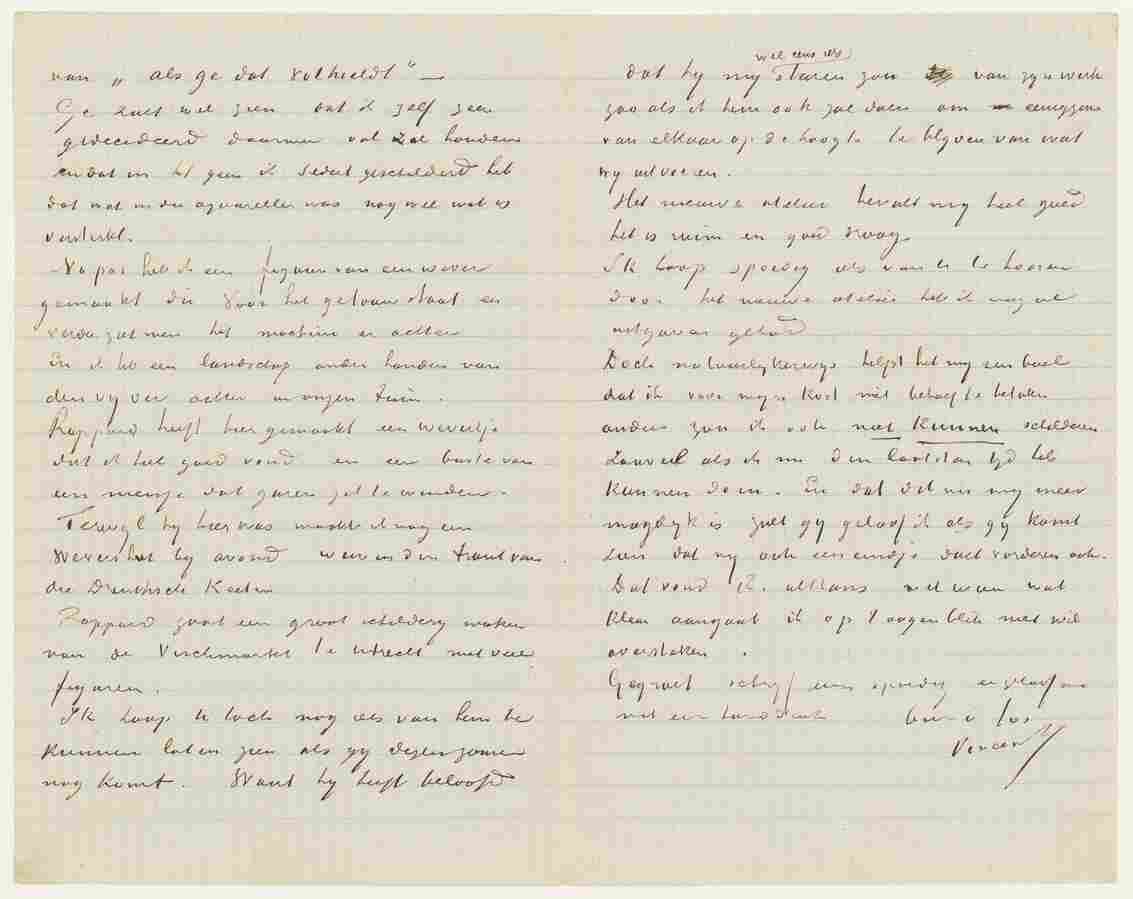 van „als ge dat volhieldt” —
Ge zult wel zien dat ik zelf zeer
gedecideerd daarmee vol zal houden
en dat in 't geen ik sedert geschilderd heb
dat wat in die aquarellen was nog wel wat is
versterkt.
Na pas heb ik een figuur van een wever
gemaakt die voor het getouw staat en
verder ziet men het machien er achter
En ik heb een landschap onder handen van
den vijver achter in onzen tuin.
Rappard heeft hier gemaakt een wevertje
dat ik heel goed vond en een buste van
een meisje dat garen zit te winden.
Terwijl hij hier was maakte ik nog een
wevershut bij avond weer in den trant van
die Drentsche Keeten
Rappard gaat een groot schilderij maken
van de Vischmarkt te Utrecht met veel
figuren.
Ik hoop U toch nog iets van hem te
kunnen laten zien als gij dezen zomer
nog komt. Want hij heeft beloofd
wel eens iets
dat hij mij sturen zou van zijn werk
zooals ik hem ook zal doen om eenigzins
van elkaar op de hoogte te blijven van wat
wij uitvoeren.
Het nieuwe atelier bevalt mij heel goed
het is ruim en goed droog.
Ik hoop spoedig iets van U te hooren
Door het nieuwe atelier heb ik nog al
uitgaven gehad
Doch natuurlijkerwijs helpt het mij een boel
dat ik voor mijn Kost niet behoef te betalen
anders zou ik ook niet kunnen schilderen
zooveel als ik nu den laatsten tijd heb
kunnen doen. En dat dit nu mij meer
mogelijk is zult gij geloof ik als gij komt
zien dat mij ook een eindje doet vorderen ook.
Dat vond R. althans wel wien wat
kleur aangaat ik op 't oogenblik niet wil
overslaken.
Gegroet schrijf eens spoedig en geloof me
met een handdruk
Vincent